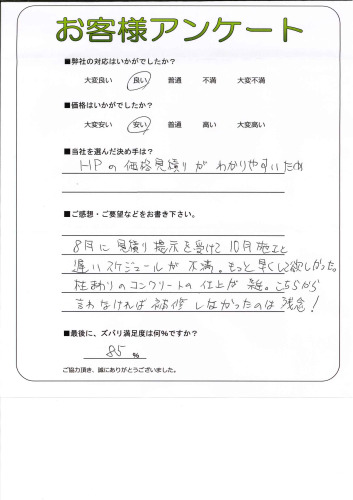 お客様アンケート
■弊社の対応はいかがでしたか?
大変良い 良い 普通 不満 大変不満
■価格はいかがでしたか?
大変安い 安い 普通 高い 大変高い
■当社を選んだ決め手は?
HPの価格見積りがわかりやすいため
■ご感想・ご要望などをお書き下さい。
8月に見積り提示を受けて10月施工と
遅いスケジュールが不満。もっと早くして欲しかった。
柱まわりのコンクリートの仕上が雑。こちらから
言わなければ補修しなかったのは残念!
■最後に、ズバリ満足度は何%ですか?
85 %
ご協力頂き、誠にありがとうございました。